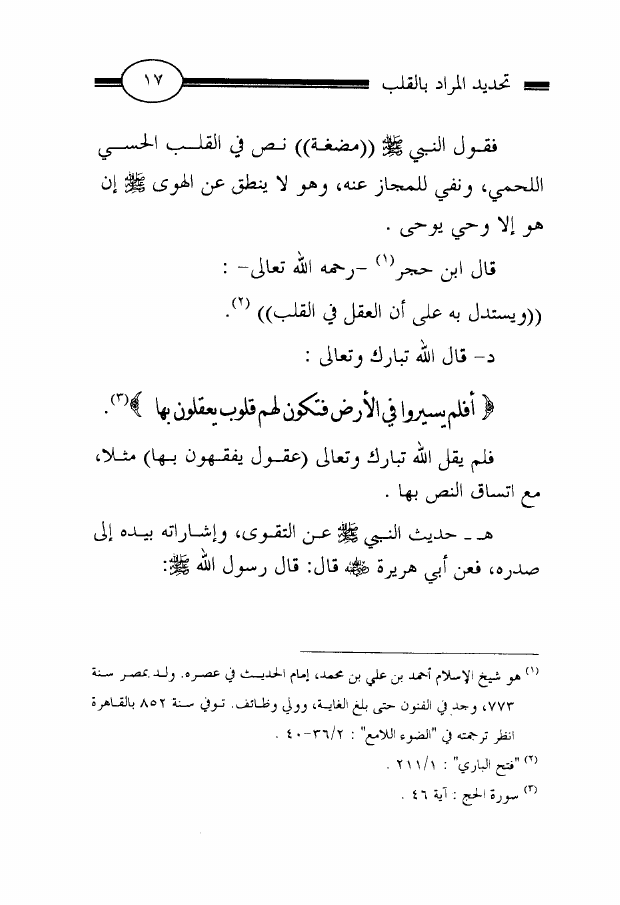 تحديد المراد بالقلب ١٧
فقول النبي ﷺ ((مضغة)) نص في القلب الحسي
اللحمي، ونفي للمجاز عنه، وهو لا ينطق عن الهوى ﷺ إن
هو إلا وحي يوحى .
قال ابن حجر(١) -رحمه الله تعالى- :
((ويستدل به على أن العقل في القلب)) (٢).
د- قال الله تبارك وتعالى :
﴿ أفلم يسيروا في الأرض فتكون لهم قلوب يعقلون بها ﴾(٣).
فلم يقل الله تبارك وتعالى (عقول يفقهون بها) مثلا،
مع اتساق النص بها .
هـ - حديث النبي ﷺ عن التقوى، وإشاراته بيده إلى
صدره، فعن أبي هريرة رضي الله عنه قال: قال رسول الله ﷺ:
(١) هو شيخ الإسلام أحمد بن علي بن محمد، إمام الحديث في عصره. ولد بمصر سنة
٧٧٣، وجد في الفنون حتى بلغ الغاية، وولي وظائف. توفي سنة ٨٥٢ بالقاهرة
انظر ترجمته في "الضوء اللامع" : ٣٦/٢-٤٠ .
(٢) "فتح الباري" : ٢١١/١ .
(٣) سورة الحج : آية ٤٦ .